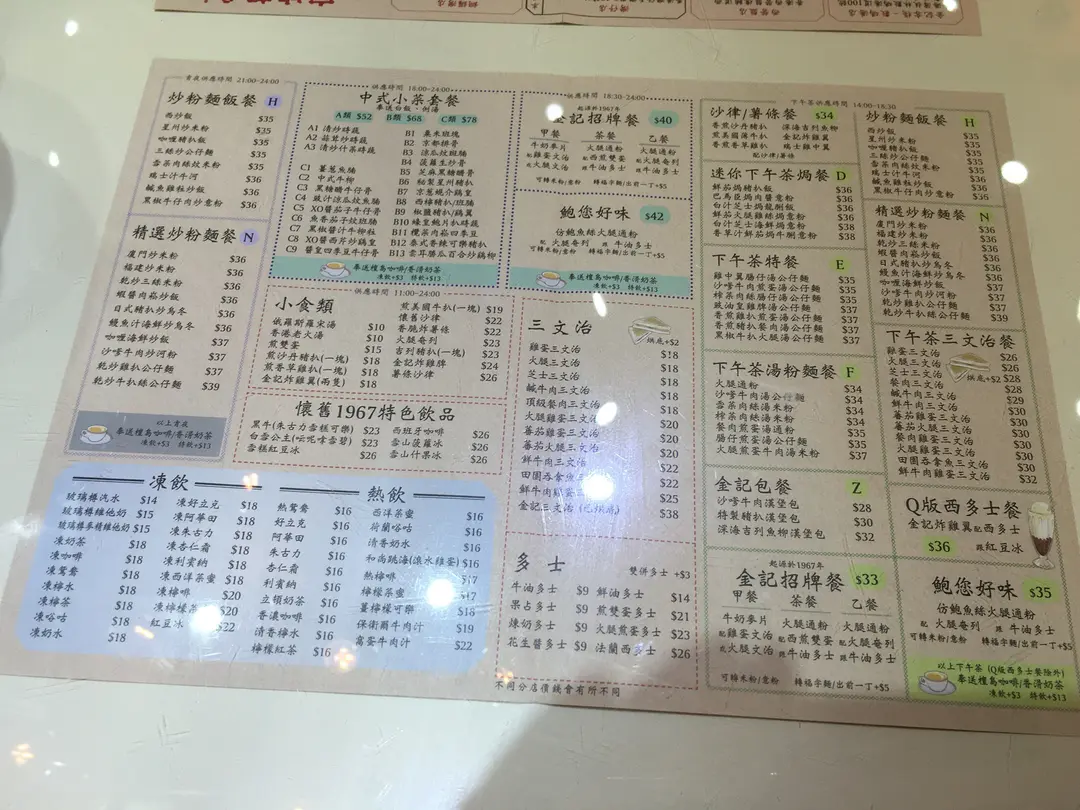 宵夜供應時間 21:00-24:00
炒粉麵飯餐 H
西炒飯 $35
星州炒米粉 $35
咖哩豬扒飯 $35
三絲炒公仔麵 $35
雪菜肉絲炆米粉 $35
瑞士汁牛河 $36
鹹魚雞粒炒飯 $36
黑椒牛仔肉炒意粉 $36
精選炒粉麵餐 N
廈門炒米粉 $36
福建炒米粉 $36
乾炒三絲米粉 $36
蝦醬肉崧炒飯 $36
日式豬扒炒烏冬 $36
鰻魚汁海鮮炒烏冬 $36
咖哩海鮮炒飯 $37
沙嗲牛肉炒河粉 $37
乾炒雞扒公仔麵 $37
乾炒牛扒絲公仔麵 $39
以上宵夜
奉送檀島咖啡/香滑奶茶
凍飲+$3 特飲+$13
供應時間 18:00-24:00
中式小菜套餐
奉送白飯、例湯
A類 $52 B類 $68 C類 $78
A1 清炒時蔬
A2 蒜茸炒時蔬
A3 清炒什菜時蔬
C1 薑葱魚腩
C2 中式牛柳
C3 黑椒汁牛仔骨
C4 豉汁涼瓜炆魚腩
C5 XO醬茄子牛仔骨
C6 魚香茄子炆班腩
C7 黑椒醬汁牛柳粒
C8 XO醬西芹炒鷄皇
C9 醬皇四季豆牛仔骨
B1 粟米班塊
B2 京都排骨
B3 涼瓜炆班腩
B4 菠蘿生炒骨
B5 芝麻黑糖醋骨
B6 秘製星州豬扒
B7 京葱燒汁鷄皇
B8 西檸豬扒/班腩
B9 椒鹽豬扒/鷄翼
B10 咸菜鮑片扒時蔬
B11 欖菜肉崧四季豆
B12 泰式香辣可樂豬扒
B13 雲耳勝瓜百合炒鷄柳
奉送檀島咖啡/香滑奶茶
凍飲+$3 特飲+$13
供應時間 18:30-24:00
起源於1967年
金記招牌餐 $40
甲餐 茶餐 乙餐
牛奶麥片 火腿通粉 火腿通粉
配雞蛋文治 配西煎雙蛋 配火腿奄列
或火腿文治 跟牛油多士 跟牛油多士
可轉米粉/意粉 轉福字麵/出前一丁+$5
鮑您好味 $42
仿鮑魚絲火腿通粉
配 火腿奄列 跟 牛油多士
可轉米粉/意粉 轉福字麵/出前一丁+$5
奉送檀島咖啡/香滑奶茶
凍飲+$3 特飲+$13
供應時間 11:00-24:00
小食類
俄羅斯羅宋湯 $10
香港老火湯 $10
煎雙蛋 $15
煎沙丹豬扒(一塊) $18
煎香草雞扒(一塊) $18
金記炸雞翼(兩隻) $18
煎美國牛扒(一塊) $19
懷舊沙律 $22
香脆炸薯條 $22
火腿奄列 $23
吉列豬扒(一塊) $23
金記炸雞脾 $24
薯條沙律 $26
懷舊1967特色飲品
黑牛(朱古力雪糕可樂) $23
白雪公主(云呢嗱雪碧) $23
雪糕紅豆冰 $26
西班牙咖啡 $26
雪山菠蘿冰 $26
雪山什果冰 $26
凍飲
玻璃樽汽水 $14
玻璃樽維他奶 $15
玻璃樽麥精維他奶 $15
凍奶茶 $18
凍咖啡 $18
凍鴛鴦 $18
凍檸水 $18
凍檸茶 $18
凍唂咕 $18
凍奶水 $18
凍好立克 $18
凍阿華田 $18
凍朱古力 $18
凍杏仁霜 $18
凍利賓納 $18
凍西洋菜蜜 $18
凍檸啡 $20
凍檸檬茶 $20
紅豆冰 $22
熱飲
熱鴛鴦 $16
好立克 $16
阿華田 $16
朱古力 $16
杏仁霜 $16
利賓納 $16
立頓奶茶 $16
香濃咖啡 $16
清香檸水 $16
檸檬紅茶 $16
西洋菜蜜 $16
荷蘭唂咕 $16
清香奶水 $16
和尚跳海(滾水雞蛋) $16
熱檸啡 $17
檸檬菜蜜 $17
薑檸檬可樂
保衛爾牛肉汁 $19
窩蛋牛肉汁 $22
三文治 烘底+$2
雞蛋三文治 $18
火腿三文治 $18
芝士三文治 $18
鹹牛肉三文治
頂級餐肉三文治
火腿雞蛋三文治
蕃茄雞蛋三文治 $20
蕃茄火腿三文治 $20
鮮牛肉三文治 $22
田園吞拿魚三文治
鮮牛肉雞蛋三文治 $25
金記三文治 $38
多士 雙併多士 +$3
牛油多士 $9
果占多士 $9
煉奶多士 $9
花生醬多士 $9
鮮油多士 $14
煎雙蛋多士 $21
火腿煎蛋多士 $23
法蘭西多士 $26
不同分店價錢會有所不同
下午茶供應時間 14:00-18:30
沙律/薯條餐 $34
香煎沙丹豬扒 深海吉列魚柳
煎美國薄牛扒 金記炸雞翼
香煎香草雞扒 瑞士雞中翼
配沙律/薯條
迷你下午茶焗餐 D
鮮茄焗豬扒飯 $36
巴馬臣焗肉醬意粉 $36
白汁芝士焗龍脷飯 $36
鮮茄火腿雞絲焗意粉 $36
白汁芝士海鮮焗意粉 $38
香草汁鮮茄焗牛脷意粉 $38
下午茶特餐 E
雞中翼腸仔湯公仔麵 $35
沙嗲牛肉煎蛋湯公仔麵 $35
榨菜肉絲腸仔湯公仔麵 $35
豉油皇雞脾湯公仔麵 $35
香煎雞扒煎蛋湯公仔麵 $37
香煎豬扒餐肉湯公仔麵 $37
黑椒牛扒火腿湯公仔麵 $37
下午茶湯粉麵餐 F
火腿通粉 $34
沙嗲牛肉湯公仔麵 $34
雪菜肉絲湯米粉 $34
榨菜肉絲湯米粉 $34
餐肉煎蛋湯通粉 $35
腸仔煎蛋湯公仔麵 $35
火腿煎蛋牛肉湯米粉 $37
金記包餐 Z
沙嗲牛肉漢堡包 $28
特製豬扒漢堡包 $30
深海吉列魚柳漢堡包 $32
起源於1967年
金記招牌餐 $33
甲餐 茶餐 乙餐
牛奶麥片 火腿通粉 火腿通粉
配雞蛋文治 配西煎雙蛋 配火腿奄列
或火腿文治 跟牛油多士 跟牛油多士
可轉米粉/意粉 轉福字麵/出前一丁+$5
炒粉麵飯餐 H
西炒飯 $35
星州炒米粉 $35
咖哩豬扒飯 $35
三絲炒公仔麵 $35
雪菜肉絲炆米粉 $35
瑞士汁牛河 $36
鹹魚雞粒炒飯 $36
黑椒牛仔肉炒意粉 $36
精選炒粉麵餐 N
廈門炒米粉 $36
福建炒米粉 $36
乾炒三絲米粉 $36
蝦醬肉崧炒飯 $36
日式豬扒炒烏冬 $36
鰻魚汁海鮮炒烏冬 $36
咖哩海鮮炒飯 $37
沙嗲牛肉炒河粉 $37
乾炒雞扒公仔麵 $37
乾炒牛扒絲公仔麵 $39
下午茶三文治餐
雞蛋三文治 $26
火腿三文治 $26
芝士三文治 烘底+$2 $28
餐肉三文治 $28
鹹牛肉三文治 $29
蕃茄雞蛋三文治 $30
火腿雞蛋三文治 $30
蕃茄火腿三文治 $30
餐肉雞蛋三文治 $30
田園吞拿魚三文治 $30
鮮牛肉雞蛋三文治 $32
Q版西多士餐
金記炸雞翼配西多士
$36 跟紅豆冰
鮑您好味 $35
仿鮑魚絲火腿通粉
配 火腿奄列 跟 牛油多士
可轉米粉/意粉 轉福字麵/出前一丁+$5
以上下午茶 (Q版西多士餐除外)
奉送檀島咖啡/香滑奶茶
凍飲+$3 特飲+$13